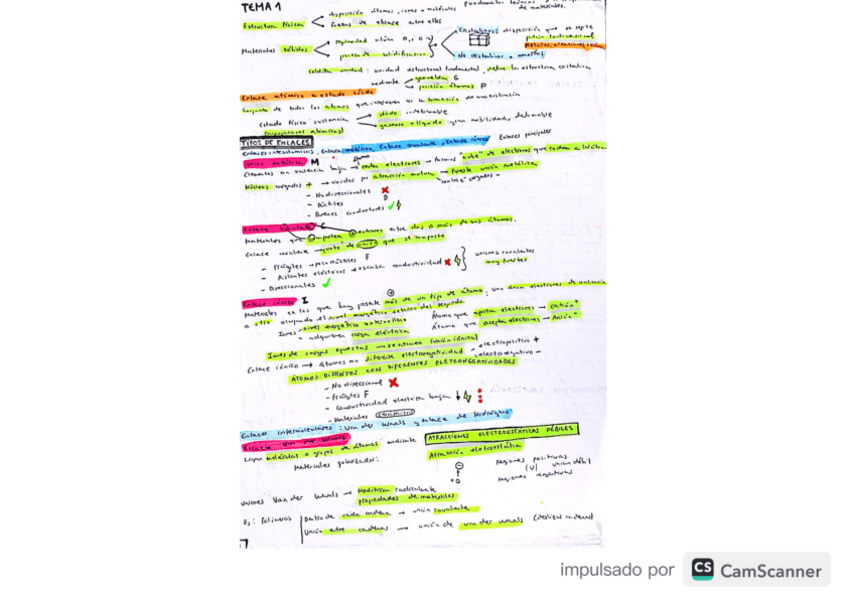 TEMA 1
fundamentos teóricos
de materiales.
Estructura física disposición átomos, iones o moléculas
fuerzas de enlace entre ellos
Materiales sólidos
proceso de solidificación
Cristalinos: disposición que se repite
patrón tridimensional
No cristalinos o amorfos
Celdilla unidad: unidad estructural fundamental, define la estructura cristalina
mediante geometría G
posición átomos P
Enlace atómico a estado sólido
Conjunto de todos los átomos que intervienen en la formación de una sustancia
Estado físico sustancia sólido: indeformable
gaseoso o líquido: gran movilidad, deformable
TIPOS DE ENLACES
Enlaces interatómicos: Enlace metálico, Enlace covalente, Enlace iónico Enlaces principales
Unión metálica M
Elementos con valencia baja → ceden electrones → forman "nube" de electrones que rodean a
Núcleos cargados + → unidos por atracción mutua → fuerte unión metálica
- No direccionales
- Dúctiles
- Buenos conductores
Enlace covalente C
Materiales que comparten electrones entre dos o más de sus átomos.
Enlace covalente → de único que se comparte
- Frágiles → poco dúctiles F
- Aislantes eléctricos → escasa conductividad
- Direccionales
uniones covalentes
muy fuertes
Enlace iónico I
Materiales en los que hay más de un tipo de átomo; uno dona electrones de valencia
a otro ocupando el nivel energético externo del segundo
Iones → nivel energético
→ adquieren carga eléctrica
Átomo que aporta electrones → catión +
Átomo que acepta electrones → Anión -
Iones de cargas opuestas → se atraen (unión iónica)
Enlace iónico → Átomos con diferente electronegatividad - electropositivo +
- electronegativo -
ÁTOMOS DISTINTOS CON DIFERENTES ELETRONEGATIVIDADES
- No direccional
- Frágiles F
- Conductividad electrica baja
- Materiales cerámicos
Enlaces intermoleculares: Van der Waals y enlace de hidrógeno
Enlace Van der Waals
Ligan moléculas o grupos de átomos mediante ATRACCIONES ELECTROSTÁTICAS DÉBILES
Materiales polarizados: Atracción eletrostática
Regiones positivas
(v) unión débil
Regiones negativas
Uniones Van der Waals → Modifican radicalmente
propiedades de materiales
Ej: Polímeros Dentro de cada cadena → unión covalente
Unión entre cadenas → unión de van der Waals
impulsado por CS CamScanner